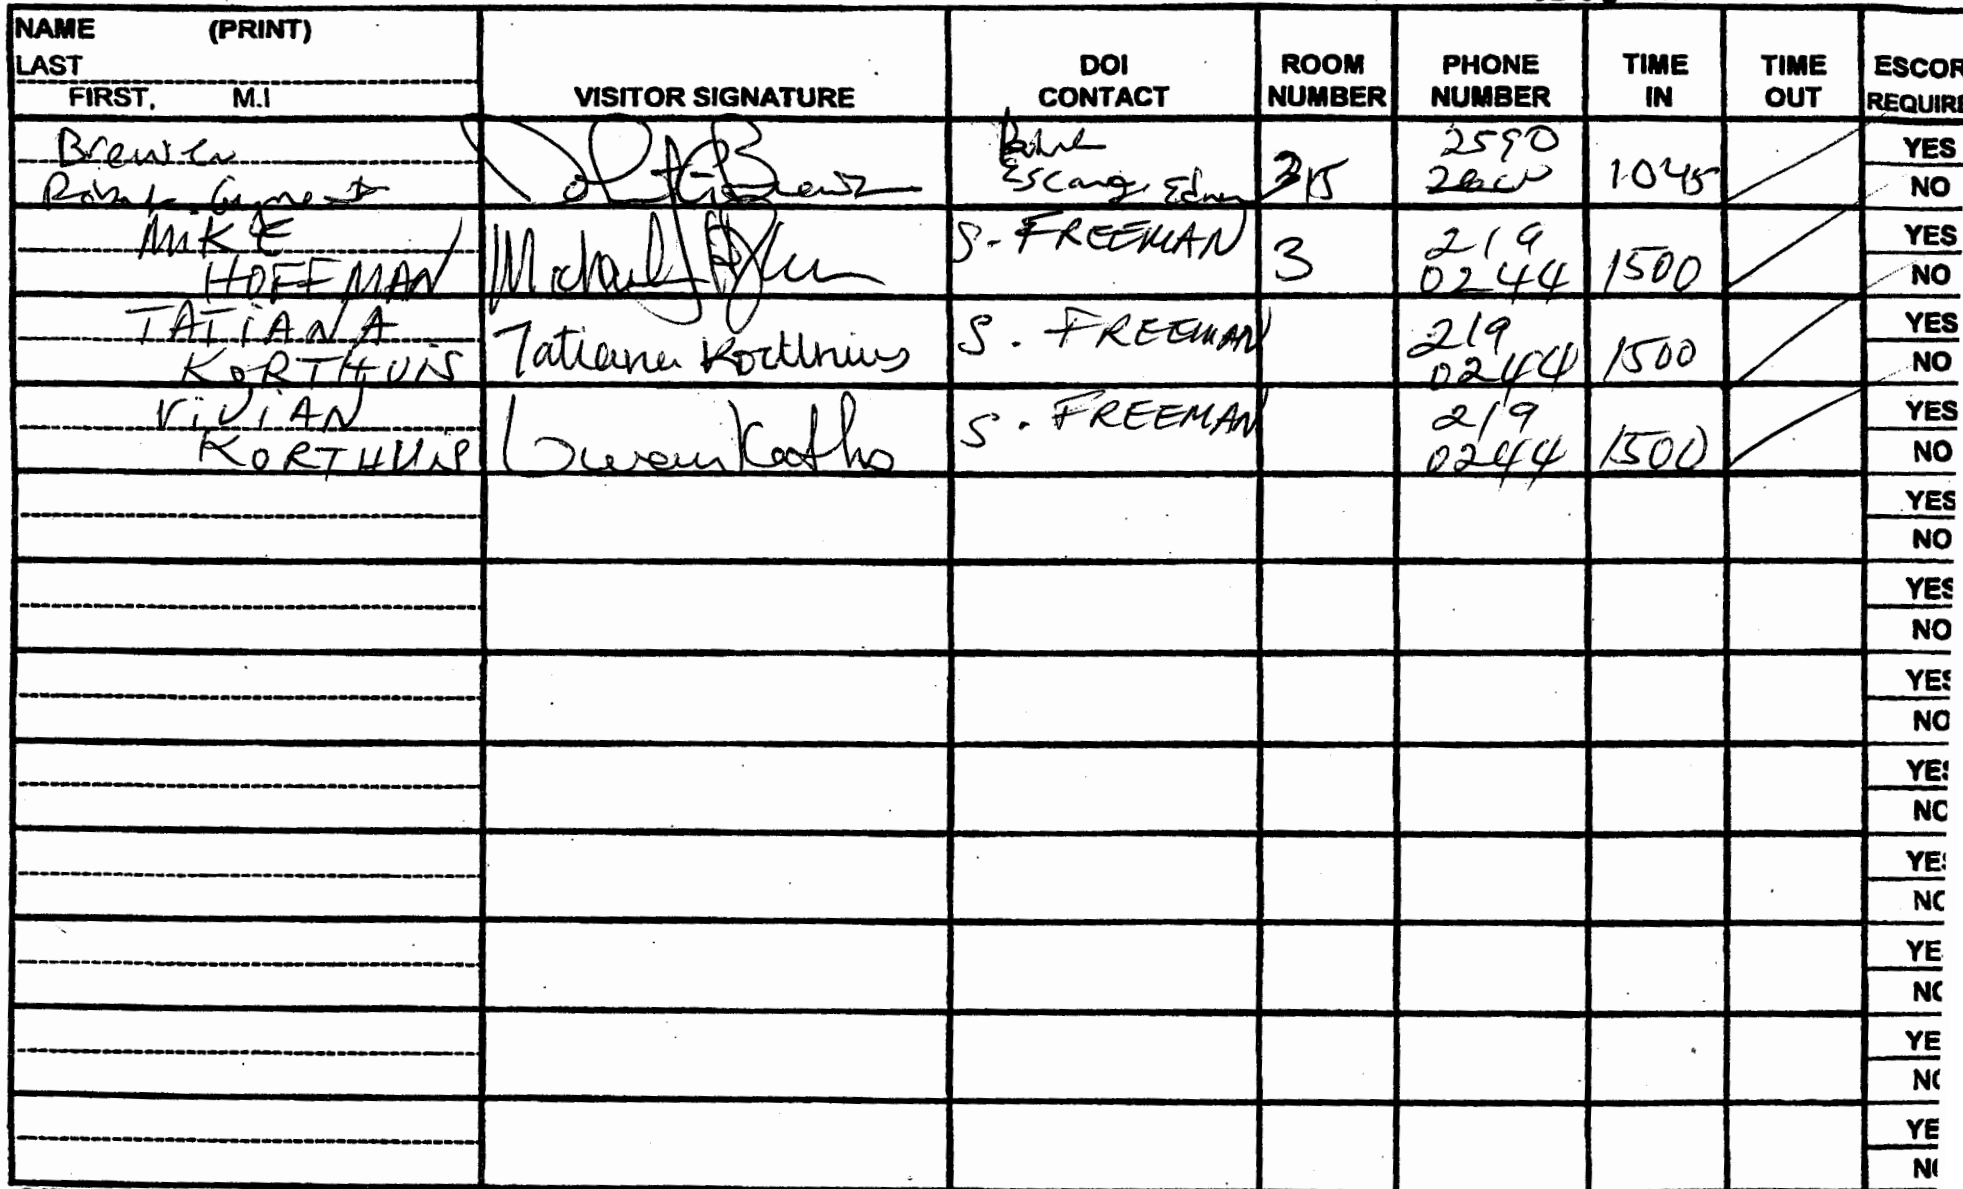 NAME (PRINT)
LAST
FIRST, M.I
VISITOR SIGNATURE
DOI CONTACT
ROOM NUMBER
PHONE NUMBER
TIME IN
TIME OUT
ESCOR
REQUIRE
Brewer
315
2590
1045
YES
NO
MIKE
HOFFMAN
S. FREEMAN
3
219
0244
1500
YES
NO
TATIANA
KORTHUIS
Tatiana Korthuis
S. FREEMAN
219
0244
1500
YES
NO
ViViAN
KORTHUIS
S. FREEMAN
219
0244
1500
YES
NO
YES
NO
YES
NO
YES
NO
YES
NO
YES
NO
YE
NO
YE
NO
YE
NO